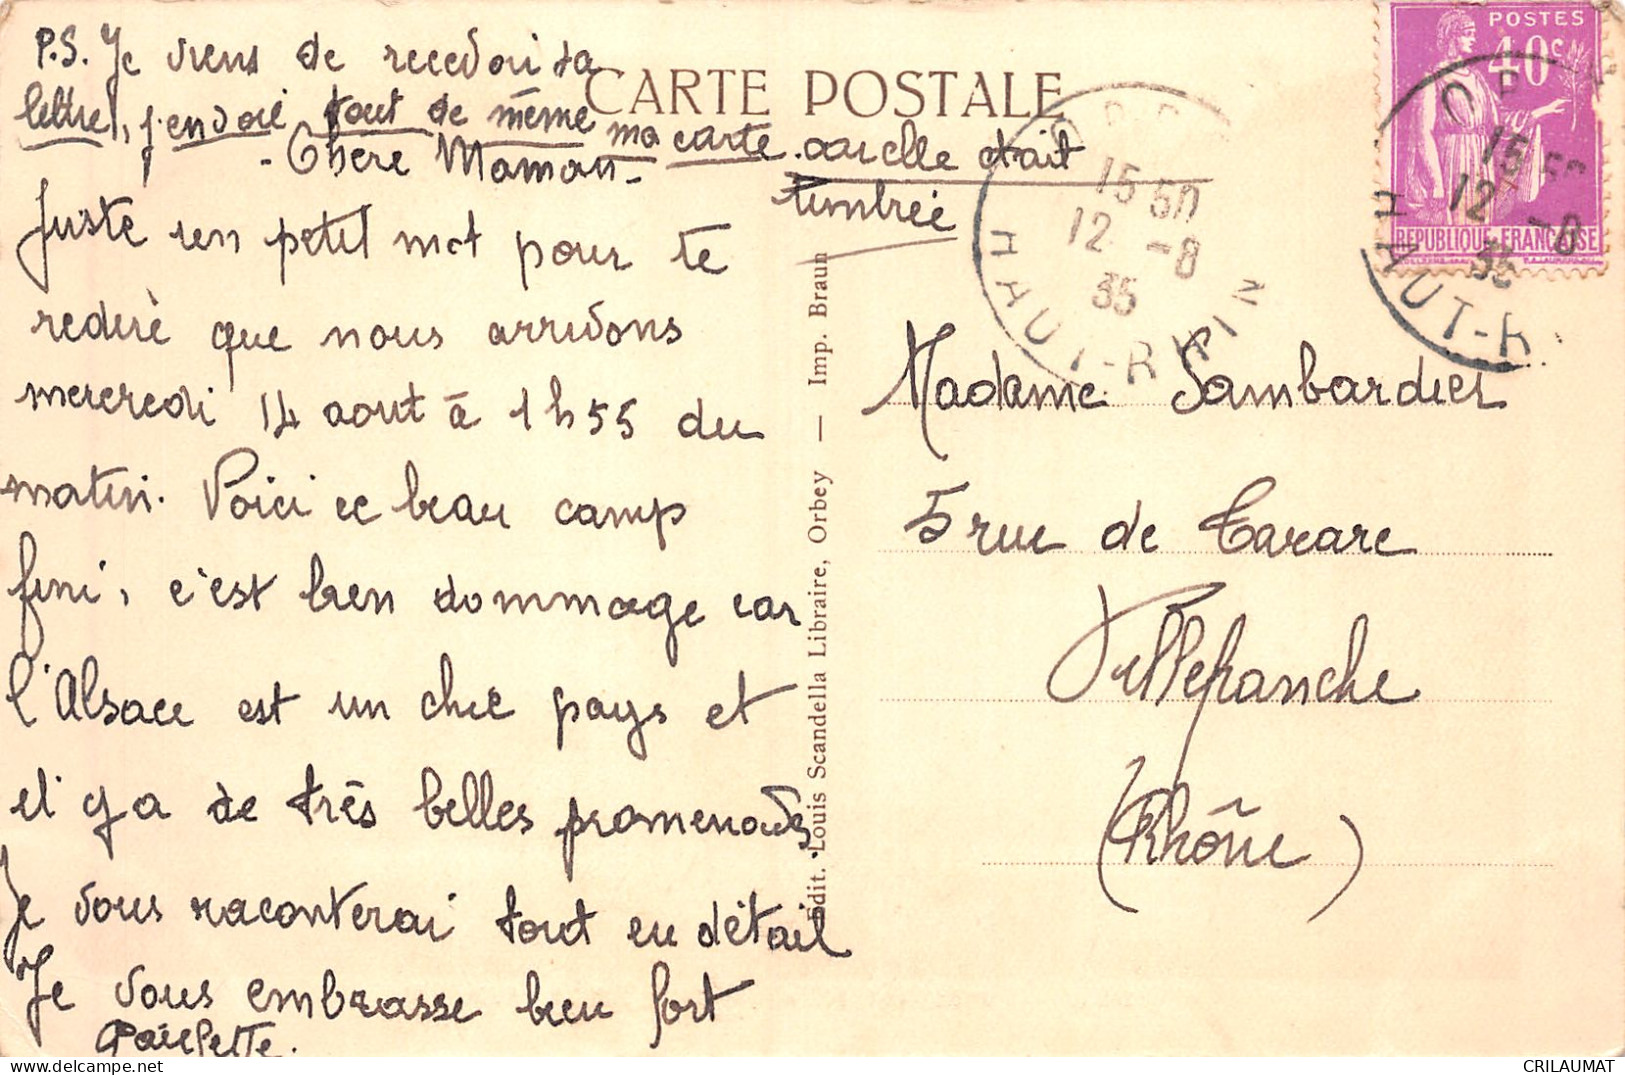 P.S. Je viens de recevoir ta
lettre, j'envoie tout de même ma carte. car elle était
timbrée
CARTE POSTALE
- Chère Maman -
Juste un petit mot pour te
redire que nous arrivons
mercredi 14 aout à 1 h 55 du
matin. Voici ce beau camp
fini, c'est bien dommage car
l'Alsace est un chic pays et
il y a de très belles promenades.
Je vous raconterai tout en détail
Je vous embrasse bien fort
Paulette.
Edit. Louis Scandella Libraire, Orbey — Imp. Braun
POSTES
40c
REPUBLIQUE FRANÇAISE
ORBEY
15 50
12 -8
35
HAUT-RHIN
15 50
12 -8
35
HAUT-R
Madame Sambardier
5 rue de Tarare
Villefranche
(Rhône)
CRILAUMAT